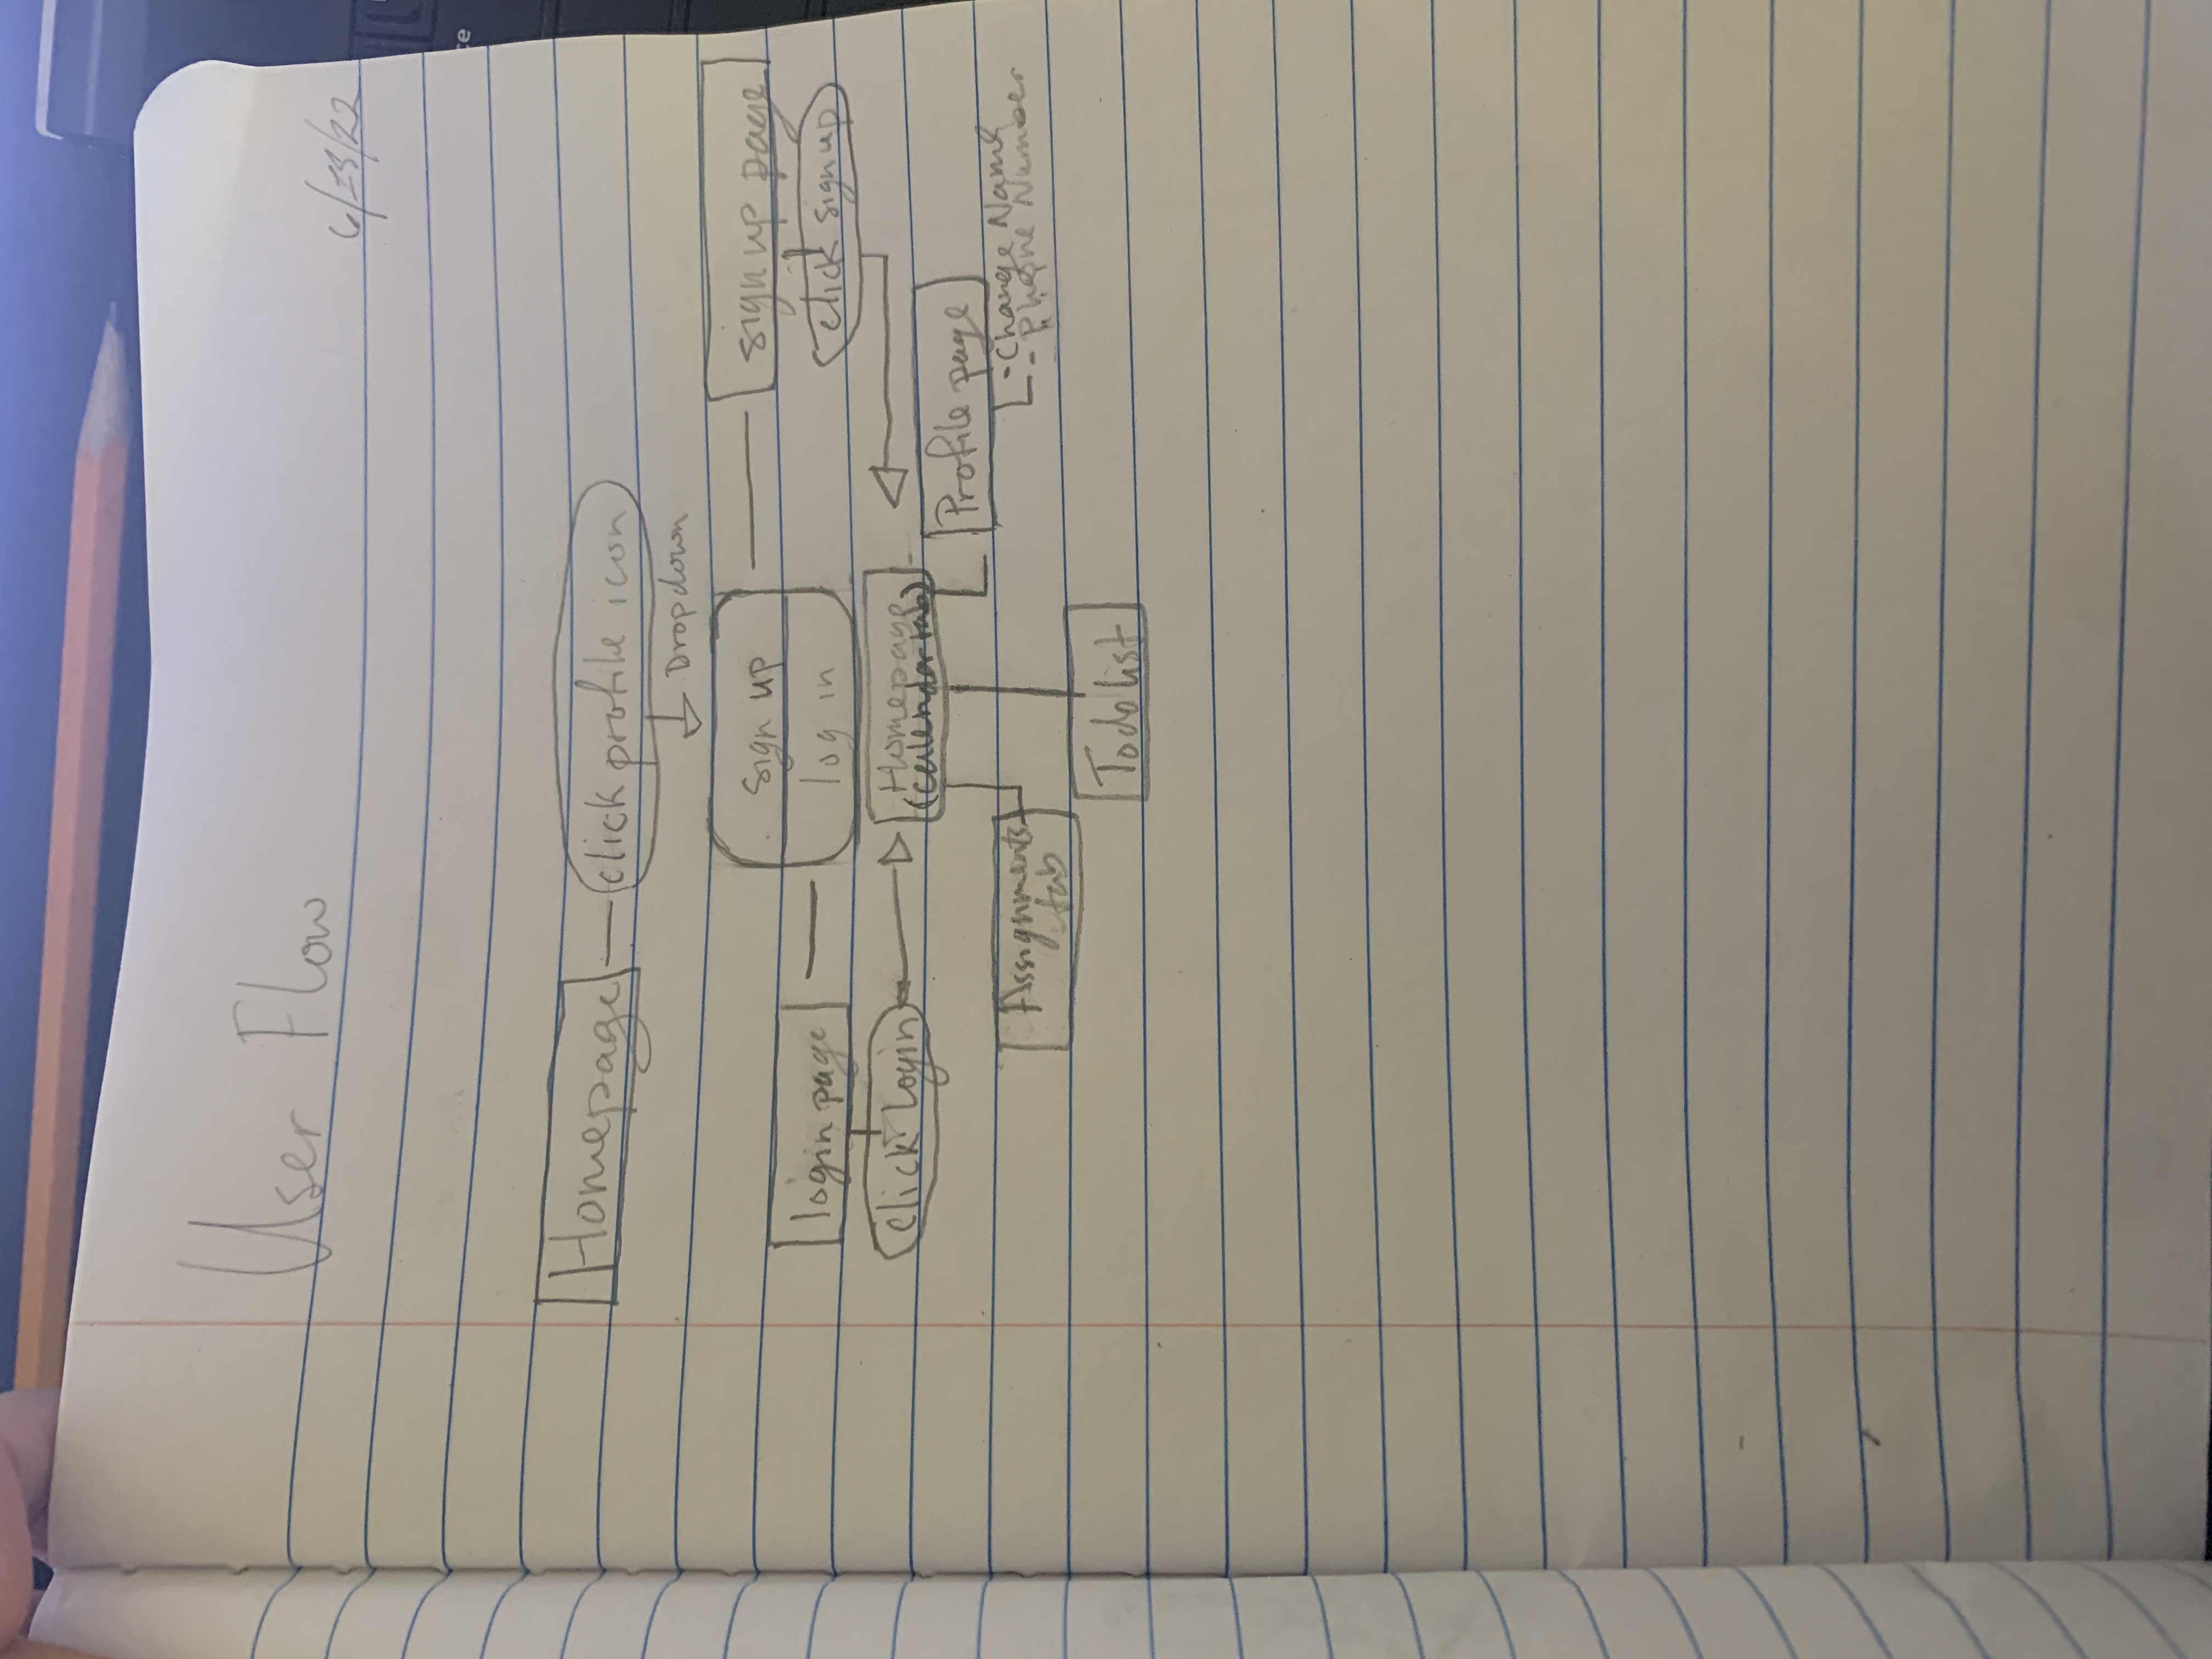 User Flow
6/13/22
Homepage
click profile icon
Dropdown
sign up
sign up page
login page
log in
click signup
click login
Homepage
(calendar tab)
Profile page
- Change Name
- Phone Number
Assignments
tab
Todo list